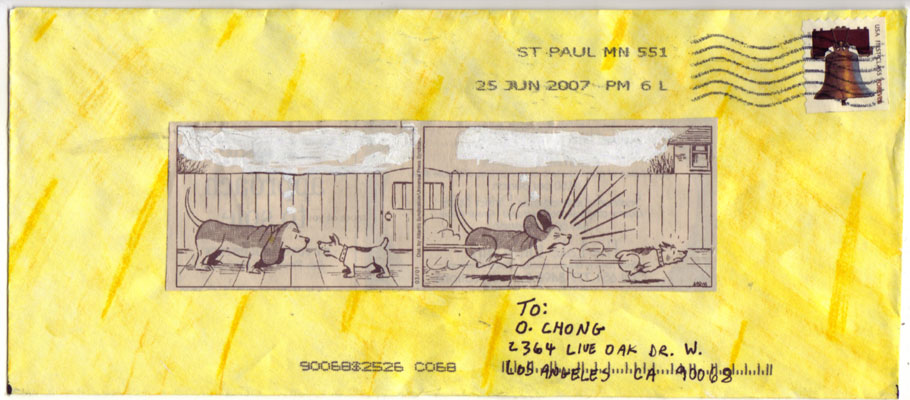 ST PAUL MN 551
25 JUN 2007 PM 6 L
USA FIRST-CLASS FOREVER
TO:
O. CHONG
2364 LIVE OAK DR. W.
LOS ANGELES CA 90068
90068$2526 C068